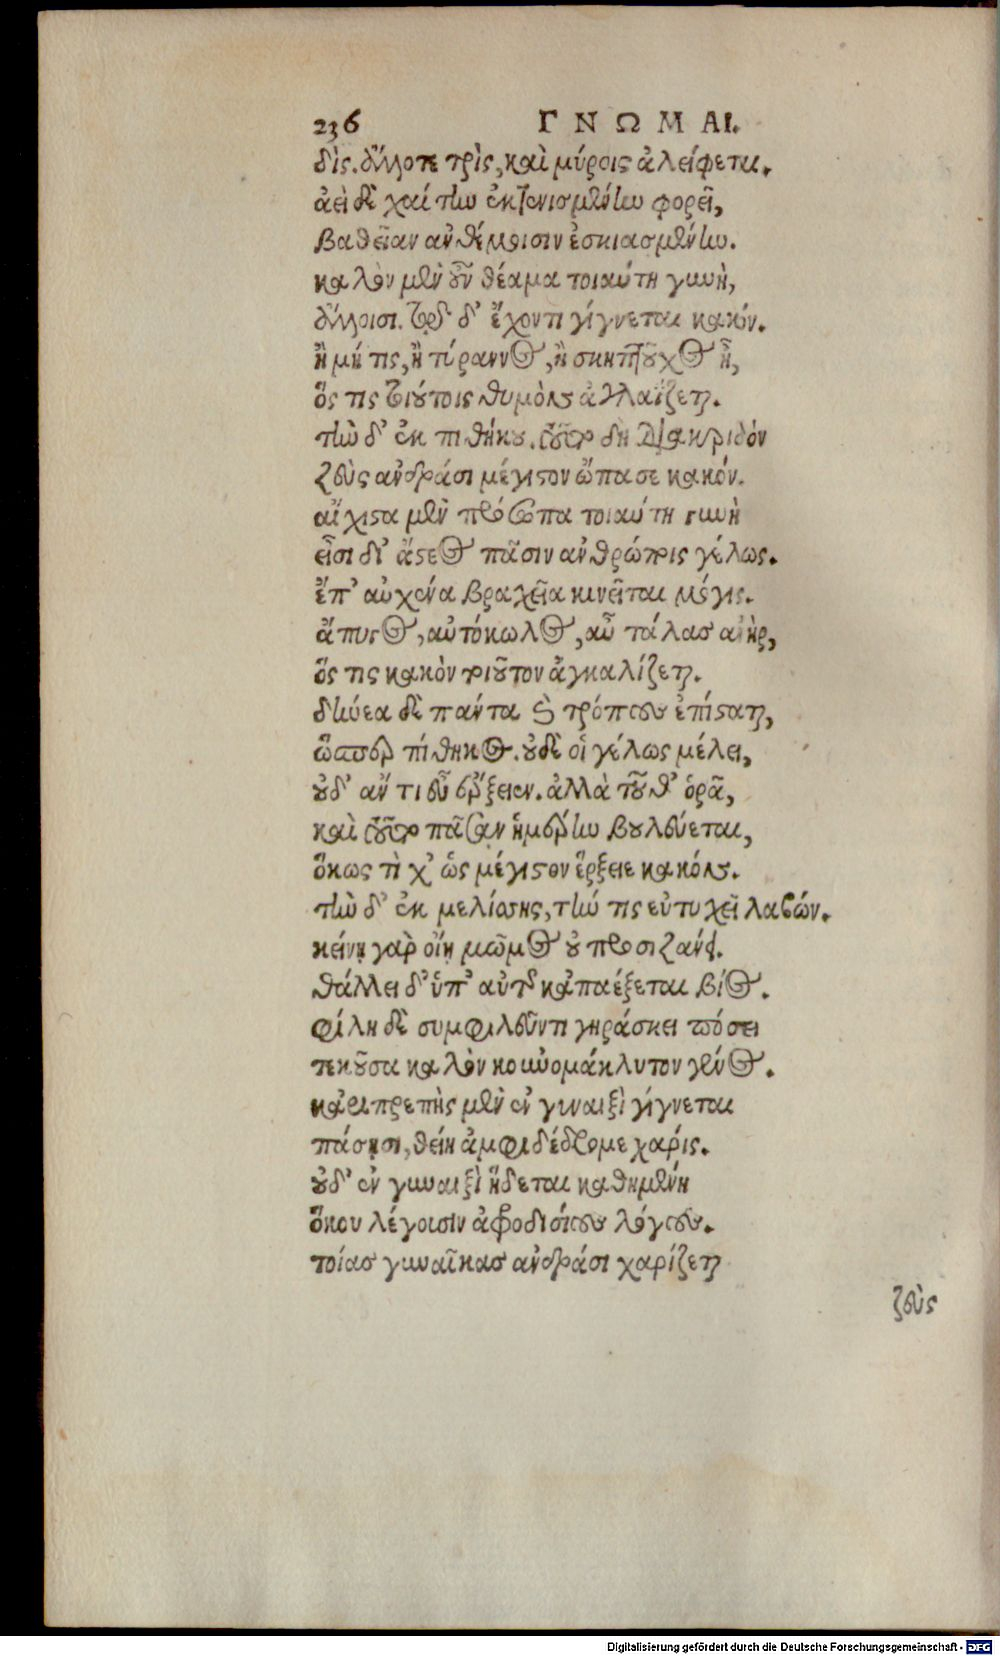 236 ΓΝΩΜΑΙ.
δὶς. ἄλλοτε τρὶς, καὶ μύροις ἀλείφεται.
ἀεὶ δὲ χαίτην ἐκτενισμένην φορεῖ,
βαθεῖαν ἀνθέμοισιν ἐσκιασμένην.
καλὸν μὲν οὖν θέαμα τοιαύτη γυνὴ,
ἄλλοισι. τῷ δ' ἔχοντι γίγνεται κακόν.
ἢ μή τις, ἢ τύραννος, ἢ σκηπτοῦχος ᾖ,
ὅς τις τοιούτοις θυμὸν ἀγλαΐζεται.
τὴν δ' ἐκ πιθήκου. τοῦτο δὴ διακριδὸν
Ζεὺς ἀνδράσι μέγιστον ὤπασε κακόν.
αἴχιστα μὲν πρόσωπα τοιαύτη γυνὴ
εἶσι δι' ἄστεος πᾶσιν ἀνθρώποις γέλως.
ἔπ' αὐχένα βραχεῖα κινεῖται μόγις.
ἄπυγος, αὐτόκωλος, αὖ τάλας ἀνὴρ,
ὅς τις κακὸν τοιοῦτον ἀγκαλίζεται.
δήνεα δὲ πάντα καὶ τρόπους ἐπίσταται,
ὥσπερ πίθηκος. οὐδὲ οἷ γέλως μέλει,
οὐδ' ἄν τι εὖ ἔρξειεν. ἀλλὰ τοῦθ' ὁρᾷ,
καὶ τοῦτο πᾶσαν ἡμέρην βουλεύεται,
ὅκως τὶ χ' ὡς μέγιστον ἔρξειε κακόν.
τὴν δ' ἐκ μελίσσης, τήν τις εὐτυχεῖ λαβών.
κείνῃ γὰρ οἴῃ μῶμος οὐ προσιζάνει.
θάλλει δ' ὑπ' αὐτῆς κἀπαέξεται βίος.
φίλη δὲ συμφιλεῦντι γηράσκει πόσει
τεκοῦσα καλὸν κοὐνομάκλυτον γένος.
κἀριπρεπὴς μὲν ἐν γυναιξὶ γίγνεται
πάσῃσι, θείη ἀμφιδέδρομε χάρις.
οὐδ' ἐν γυναιξὶ ἥδεται καθημένη
ὅκου λέγοισιν ἀφροδισίους λόγους.
τοίας γυναῖκας ἀνδράσι χαρίζεται
ζεὺς
Digitalisierung gefördert durch die Deutsche Forschungsgemeinschaft - DFG